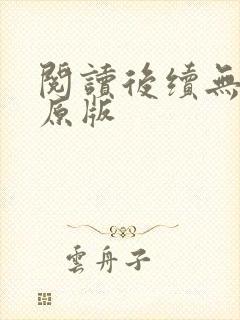 閱讀後續無
原版
雲舟子